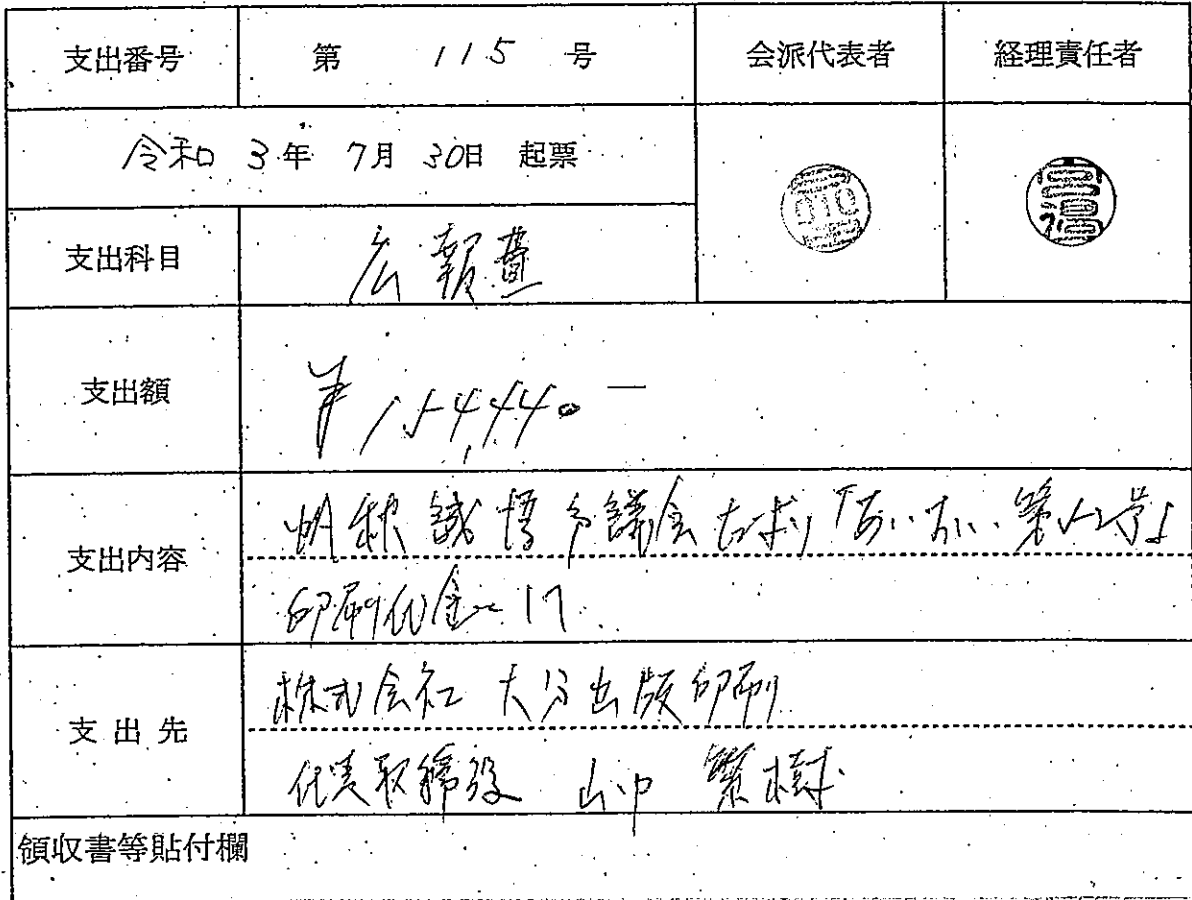 支出番号 第 115 号 会派代表者 経理責任者
令和 3年 7月 30日 起票
支出科目 広報費
支出額 ¥154,440-
支出内容 帆秋誠悟市議会だより「あいあい 第
印刷代金
支出先 株式会社 大分出版印刷
代表取締役 山中 繁樹
領収書等貼付欄